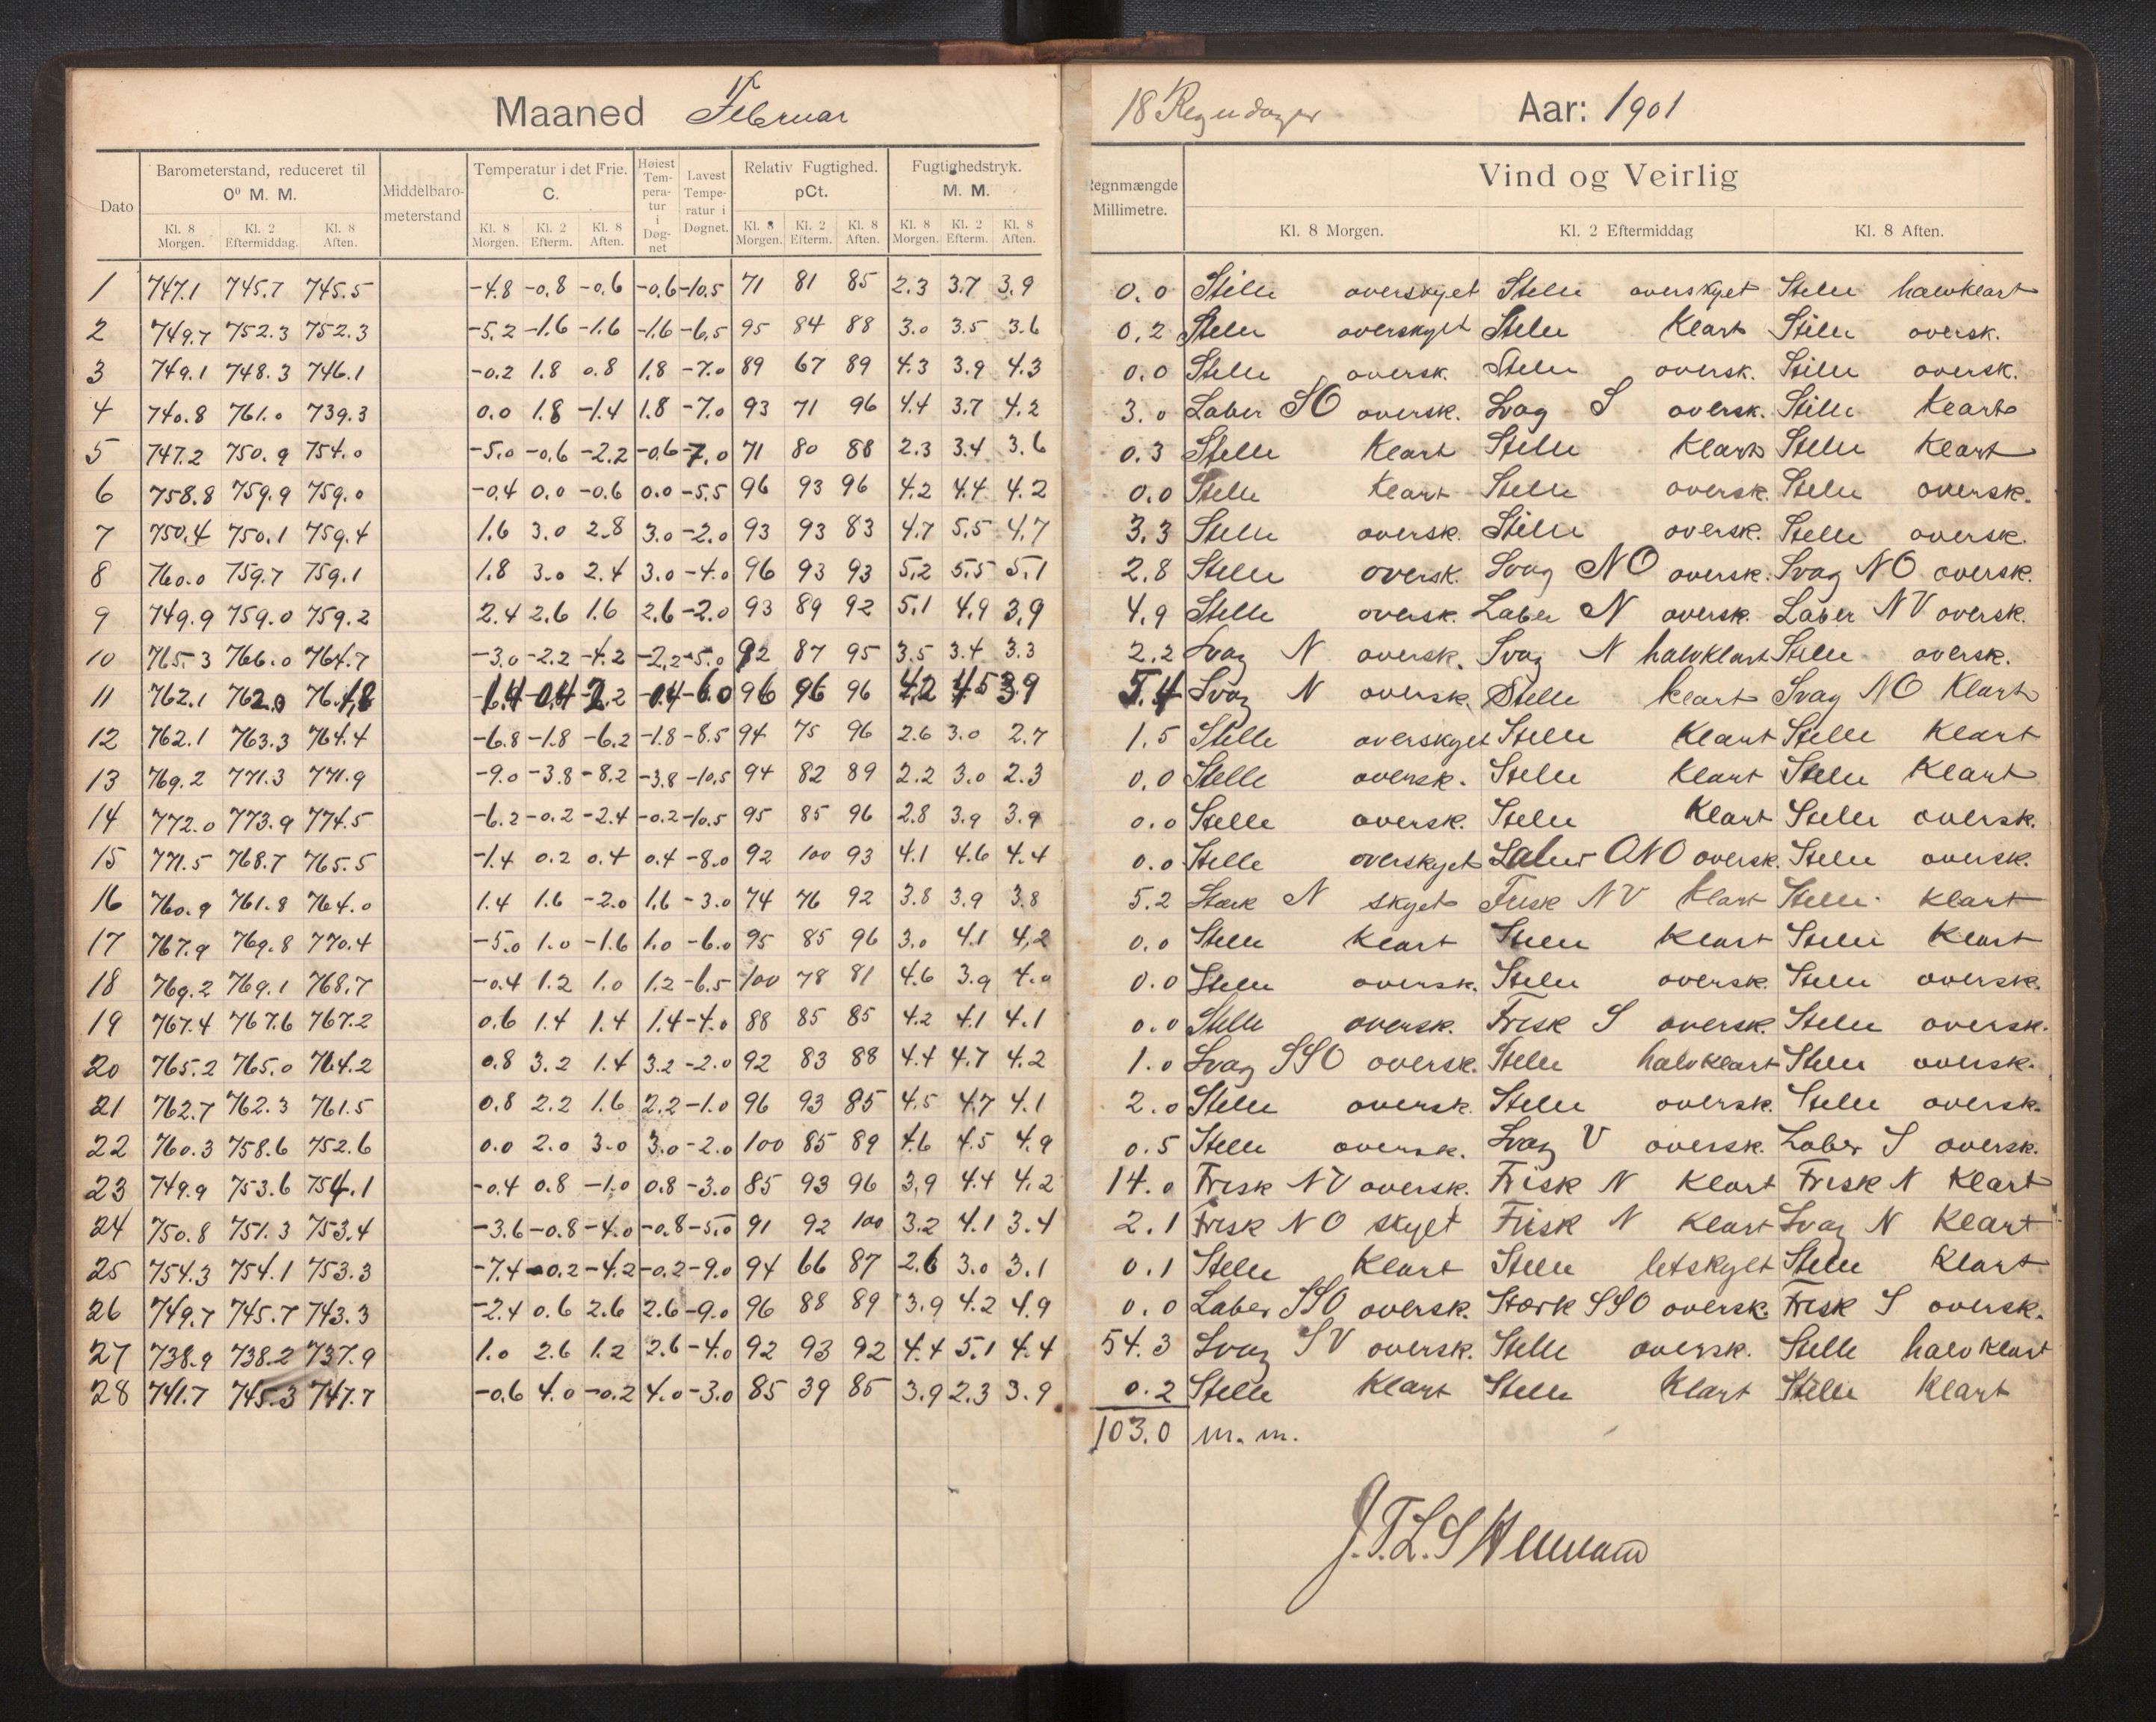 Maaned Februar
18 Regndager Aar: 1901
Dato Barometerstand, reduceret til 0° M. M. Middelbaro-meterstand Temperatur i det Frie. C. Høiest Tem-pera-tur i Døg-net Lavest Tempe-ratur i Døgnet. Relativ Fugtighed. pCt. Fugtighedstryk. M. M. Regnmængde Millimetre. Vind og Veirlig
Kl. 8 Morgen. Kl. 2 Eftermiddag. Kl. 8 Aften. Kl. 8 Morgen. Kl. 2 Efterm. Kl. 8 Aften. Kl. 8 Morgen. Kl. 2 Efterm. Kl. 8 Aften. Kl. 8 Morgen. Kl. 2 Efterm. Kl. 8 Aften. Kl. 8 Morgen. Kl. 2 Eftermiddag Kl. 8 Aften.
1 747.1 745.7 745.5 -4.8 -0.8 -0.6 -0.6 -10.5 71 81 85 2.3 3.7 3.9 0.0 Stille overskyet Stille overskyet Stille halvklart
2 749.7 752.3 752.3 -5.2 -1.6 -1.6 -1.6 -6.5 95 84 88 3.0 3.5 3.6 0.2 Stille overskyet Stille Klart Stille oversk.
3 749.1 748.3 746.1 -0.2 1.8 0.8 1.8 -7.0 89 67 89 4.3 3.9 4.3 0.0 Stille oversk. Stille oversk. Stille oversk.
4 740.8 761.0 739.3 0.0 1.8 -1.4 1.8 -7.0 93 71 96 4.4 3.7 4.2 3.0 Laber SO oversk. Svag S oversk. Stille Klart
5 747.2 750.9 754.0 -5.0 -0.6 -2.2 -0.6 -7.0 71 80 88 2.3 3.4 3.6 0.3 Stille Klart Stille Klart Stille Klart
6 758.8 759.9 759.0 -0.4 0.0 -0.6 0.0 -5.5 96 93 96 4.2 4.4 4.2 0.0 Stille Klart Stille oversk. Stille oversk.
7 750.4 750.1 759.4 1.6 3.0 2.8 3.0 -2.0 93 93 83 4.7 5.5 4.7 3.3 Stille oversk. Stille oversk. Stille oversk.
8 760.0 759.7 759.1 1.8 3.0 2.4 3.0 -4.0 96 93 93 5.2 5.5 5.1 2.8 Stille oversk. Svag NO oversk. Svag NO oversk.
9 749.9 759.0 759.2 2.4 2.6 1.6 2.6 -2.0 93 89 92 5.1 4.9 3.9 4.9 Stille oversk. Laber N oversk. Laber NV oversk.
10 765.3 766.0 764.7 -3.0 -2.2 -4.2 -2.2 -5.0 92 87 95 3.5 3.4 3.3 2.2 Svag N oversk. Svag N halvklart Stille oversk.
11 762.1 762.9 761.8 -1.4 -0.4 -2.2 -0.4 -6.0 96 96 96 4.2 4.5 3.9 5.4 Svag N oversk. Stille klart Svag NO Klart
12 762.1 763.3 764.4 -6.8 -1.8 -6.2 -1.8 -8.5 94 75 96 2.6 3.0 2.7 1.5 Stille overskyet Stille Klart Stille Klart
13 769.2 771.3 771.9 -9.0 -3.8 -8.2 -3.8 -10.5 94 82 89 2.2 3.0 2.3 0.0 Stille oversk. Stille Klart Stille Klart
14 772.0 773.9 774.5 -6.2 -0.2 -2.4 -0.2 -10.5 95 85 96 2.8 3.9 3.9 0.0 Stille oversk. Stille Klart Stille oversk.
15 771.5 768.7 765.5 -1.4 0.2 0.4 0.4 -8.0 92 100 93 4.1 4.6 4.4 0.0 Stille overskyet Laber ONO oversk. Stille oversk.
16 760.9 761.8 764.0 1.4 1.6 -2.0 1.6 -3.0 74 76 92 3.8 3.9 3.8 5.2 Stærk N skyet Frisk NV Klart Stille klart
17 767.9 769.8 770.4 -5.0 1.0 -1.6 1.0 -6.0 95 85 96 3.0 4.1 4.2 0.0 Stille Klart Stille Klart Stille Klart
18 769.2 769.1 768.7 -0.4 1.2 1.0 1.2 -6.5 100 78 81 4.6 3.9 4.0 0.0 Stille oversk. Stille oversk. Stille oversk.
19 767.4 767.6 767.2 0.6 1.4 1.4 1.4 -4.0 88 85 85 4.2 4.1 4.1 0.0 Stille oversk. Frisk S oversk. Stille oversk.
20 765.2 765.0 764.2 0.8 3.2 1.4 3.2 -2.0 92 83 88 4.4 4.7 4.2 1.0 Svag SSO oversk. Stille halvklart Stille oversk.
21 762.7 762.3 761.5 0.8 2.2 1.6 2.2 -1.0 96 93 85 4.5 4.7 4.1 2.0 Stille oversk. Stille oversk. Stille oversk.
22 760.3 758.6 752.6 0.0 2.0 3.0 3.0 -2.0 100 85 89 4.6 4.5 4.9 0.5 Stille oversk. Svag V oversk. Laber S oversk.
23 749.9 753.6 754.1 -0.4 0.8 -1.0 0.8 -3.0 85 93 96 3.9 4.4 4.2 14.0 Frisk NV oversk. Frisk N Klart Frisk N Klart
24 750.8 751.3 753.4 -3.6 -0.8 -4.0 -0.8 -5.0 91 92 100 3.2 4.1 3.4 2.1 Frisk NO skyet Frisk N Klart Svag N Klart
25 754.3 754.1 753.3 -7.4 -0.2 -4.2 -0.2 -9.0 94 66 87 2.6 3.0 3.1 0.1 Stille Klart Stille letskyet Stille Klart
26 749.7 745.7 743.3 -2.4 0.6 2.6 2.6 -9.0 96 88 89 3.9 4.2 4.9 0.0 Laber SSO oversk. Stærk SSO oversk. Frisk S oversk.
27 738.9 738.2 737.9 1.0 2.6 1.2 2.6 -4.0 92 93 92 4.4 5.1 4.4 54.3 Svag SV oversk. Stille oversk. Stille halvklart
28 741.7 745.3 747.7 -0.6 4.0 -0.2 4.0 -3.0 85 39 85 3.9 2.3 3.9 0.2 Stille Klart Stille Klart Stille Klart
103.0 m. m.
J.T.L.S